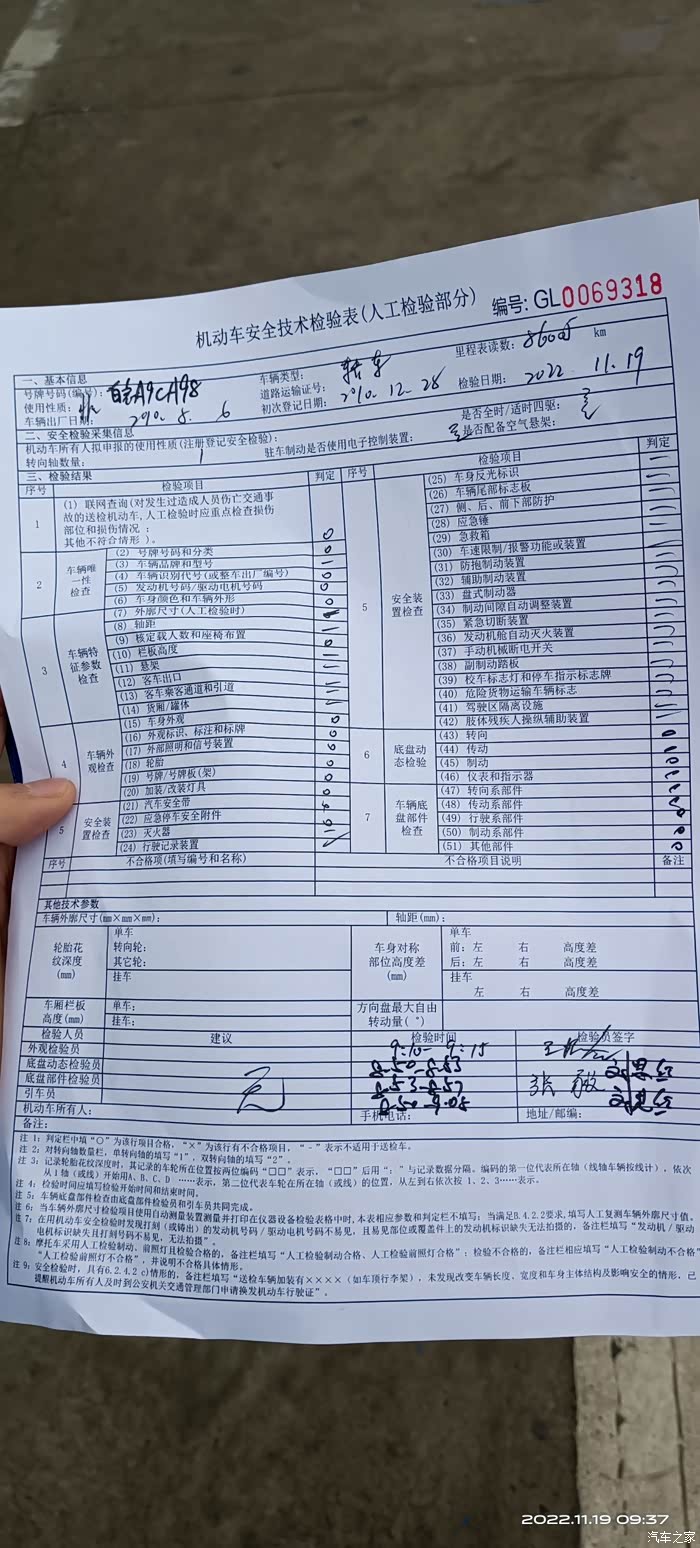 机动车安全技术检验表(人工检验部分)
编号: GL0069318
一、基本信息
号牌号码(编号): A9CA98
车辆类型: 轿车
里程表读数: km
使用性质:
道路运输证号:
检验日期: 2022 11.19
车辆出厂日期: 2010.8.6
初次登记日期: 2010.12.28
二、安全检验采集信息
机动车所有人拟申报的使用性质(注册登记安全检验):
是否全时/适时四驱: 否
转向轴数量: 1
驻车制动是否使用电子控制装置: 否
是否配备空气悬架: 否
三、检验结果
序号 检验项目 判定 序号 检验项目 判定
1
(1) 联网查询(对发生过造成人员伤亡交通事
故的送检机动车,人工检验时应重点检查损伤
部位和损伤情况;
其他不符合情形)。
2 车辆唯一性检查
(2) 号牌号码和分类
(3) 车辆品牌和型号
(4) 车辆识别代号(或整车出厂编号)
(5) 发动机号码/驱动电机号码
(6) 车身颜色和车辆外形
3 车辆特征参数检查
(7) 外廓尺寸(人工检验时)
(8) 轴距
(9) 核定载人数和座椅布置
(10) 栏板高度
(11) 悬架
(12) 客车出口
(13) 客车乘客通道和引道
(14) 货厢/罐体
4 车辆外观检查
(15) 车身外观
(16) 外观标识、标注和标牌
(17) 外部照明和信号装置
(18) 轮胎
(19) 号牌/号牌板(架)
(20) 加装/改装灯具
5 安全装置检查
(21) 汽车安全带
(22) 应急停车安全附件
(23) 灭火器
(24) 行驶记录装置
5 安全装置检查
(25) 车身反光标识
(26) 车辆尾部标志板
(27) 侧、后、前下部防护
(28) 应急锤
(29) 急救箱
(30) 车速限制/报警功能或装置
(31) 防抱制动装置
(32) 辅助制动装置
(33) 盘式制动器
(34) 制动间隙自动调整装置
(35) 紧急切断装置
(36) 发动机舱自动灭火装置
(37) 手动机械断电开关
(38) 副制动踏板
(39) 校车标志灯和停车指示标志牌
(40) 危险货物运输车辆标志
(41) 驾驶区隔离设施
(42) 肢体残疾人操纵辅助装置
6 底盘动态检验
(43) 转向
(44) 传动
(45) 制动
(46) 仪表和指示器
7 车辆底盘部件检查
(47) 转向系部件
(48) 传动系部件
(49) 行驶系部件
(50) 制动系部件
(51) 其他部件
序号 不合格项(填写编号和名称) 不合格项目说明 备注
其他技术参数
车辆外廓尺寸(mm×mm×mm): 轴距(mm):
轮胎花纹深度(mm)
单车
转向轮:
其它轮:
挂车
车身对称部位高度差(mm)
单车
前:左 右 高度差
后:左 右 高度差
挂车
左 右 高度差
车厢栏板高度(mm)
单车:
挂车:
方向盘最大自由转动量(°)
检验人员 建议 检验时间 检验员签字
外观检验员 9:10-9:15
底盘动态检验员 8.50-8.53
底盘部件检验员 8.53-8.57 张毅
引车员 8.50-9.05
机动车所有人: 手机电话: 地址/邮编:
备注:
注 1: 判定栏中填“○”为该行项目合格,“×”为该行有不合格项目,“-”表示不适用于送检车。
注 2: 对转向轴数量栏,单转向轴的填写“1”,双转向轴的填写“2”。
注 3: 记录轮胎花纹深度时,其记录的车轮所在位置按两位编码“□□”表示,“□□”后用“:”与记录数据分隔。编码的第一位代表所在轴(线轴车辆按线计),依次
从1轴(或线)开始用A、B、C、D ……表示,第二位代表车轮在所在轴(或线)的位置,从左到右依次按 1、2、3……表示。
注 4: 检验时应填写检验开始时间和结束时间。
注 5: 车辆底盘部件检查由底盘部件检验员和引车员共同完成。
注 6: 当车辆外廓尺寸检验项目使用自动测量装置测量并打印在仪器设备检验表格中时,本表相应参数和判定栏不填写;当满足B.4.2.2要求,填写人工复测车辆外廓尺寸值。
注 7: 在用机动车安全检验时发现打刻(或铸出)的发动机号码/驱动电机号码不易见,且易见部位或覆盖件上的发动机标识缺失无法拍摄的,备注栏填写“发动机/驱动
电机标识缺失且打刻号码不易见,无法拍摄”。
注 8: 摩托车采用人工检验制动、前照灯且检验合格的,备注栏填写“人工检验制动合格、人工检验前照灯合格”;检验不合格的,备注栏相应填写“人工检验制动不合格”
“人工检验前照灯不合格”,并说明不合格具体情形。
注 9: 安全检验时,具有6.2.4.2 c)情形的,备注栏填写“送检车辆加装有××××(如车顶行李架),未发现改变车辆长度、宽度和车身主体结构及影响安全的情形,已
提醒机动车所有人及时到公安机关交通管理部门申请换发机动车行驶证”。
2022.11.19 09:37
汽车之家